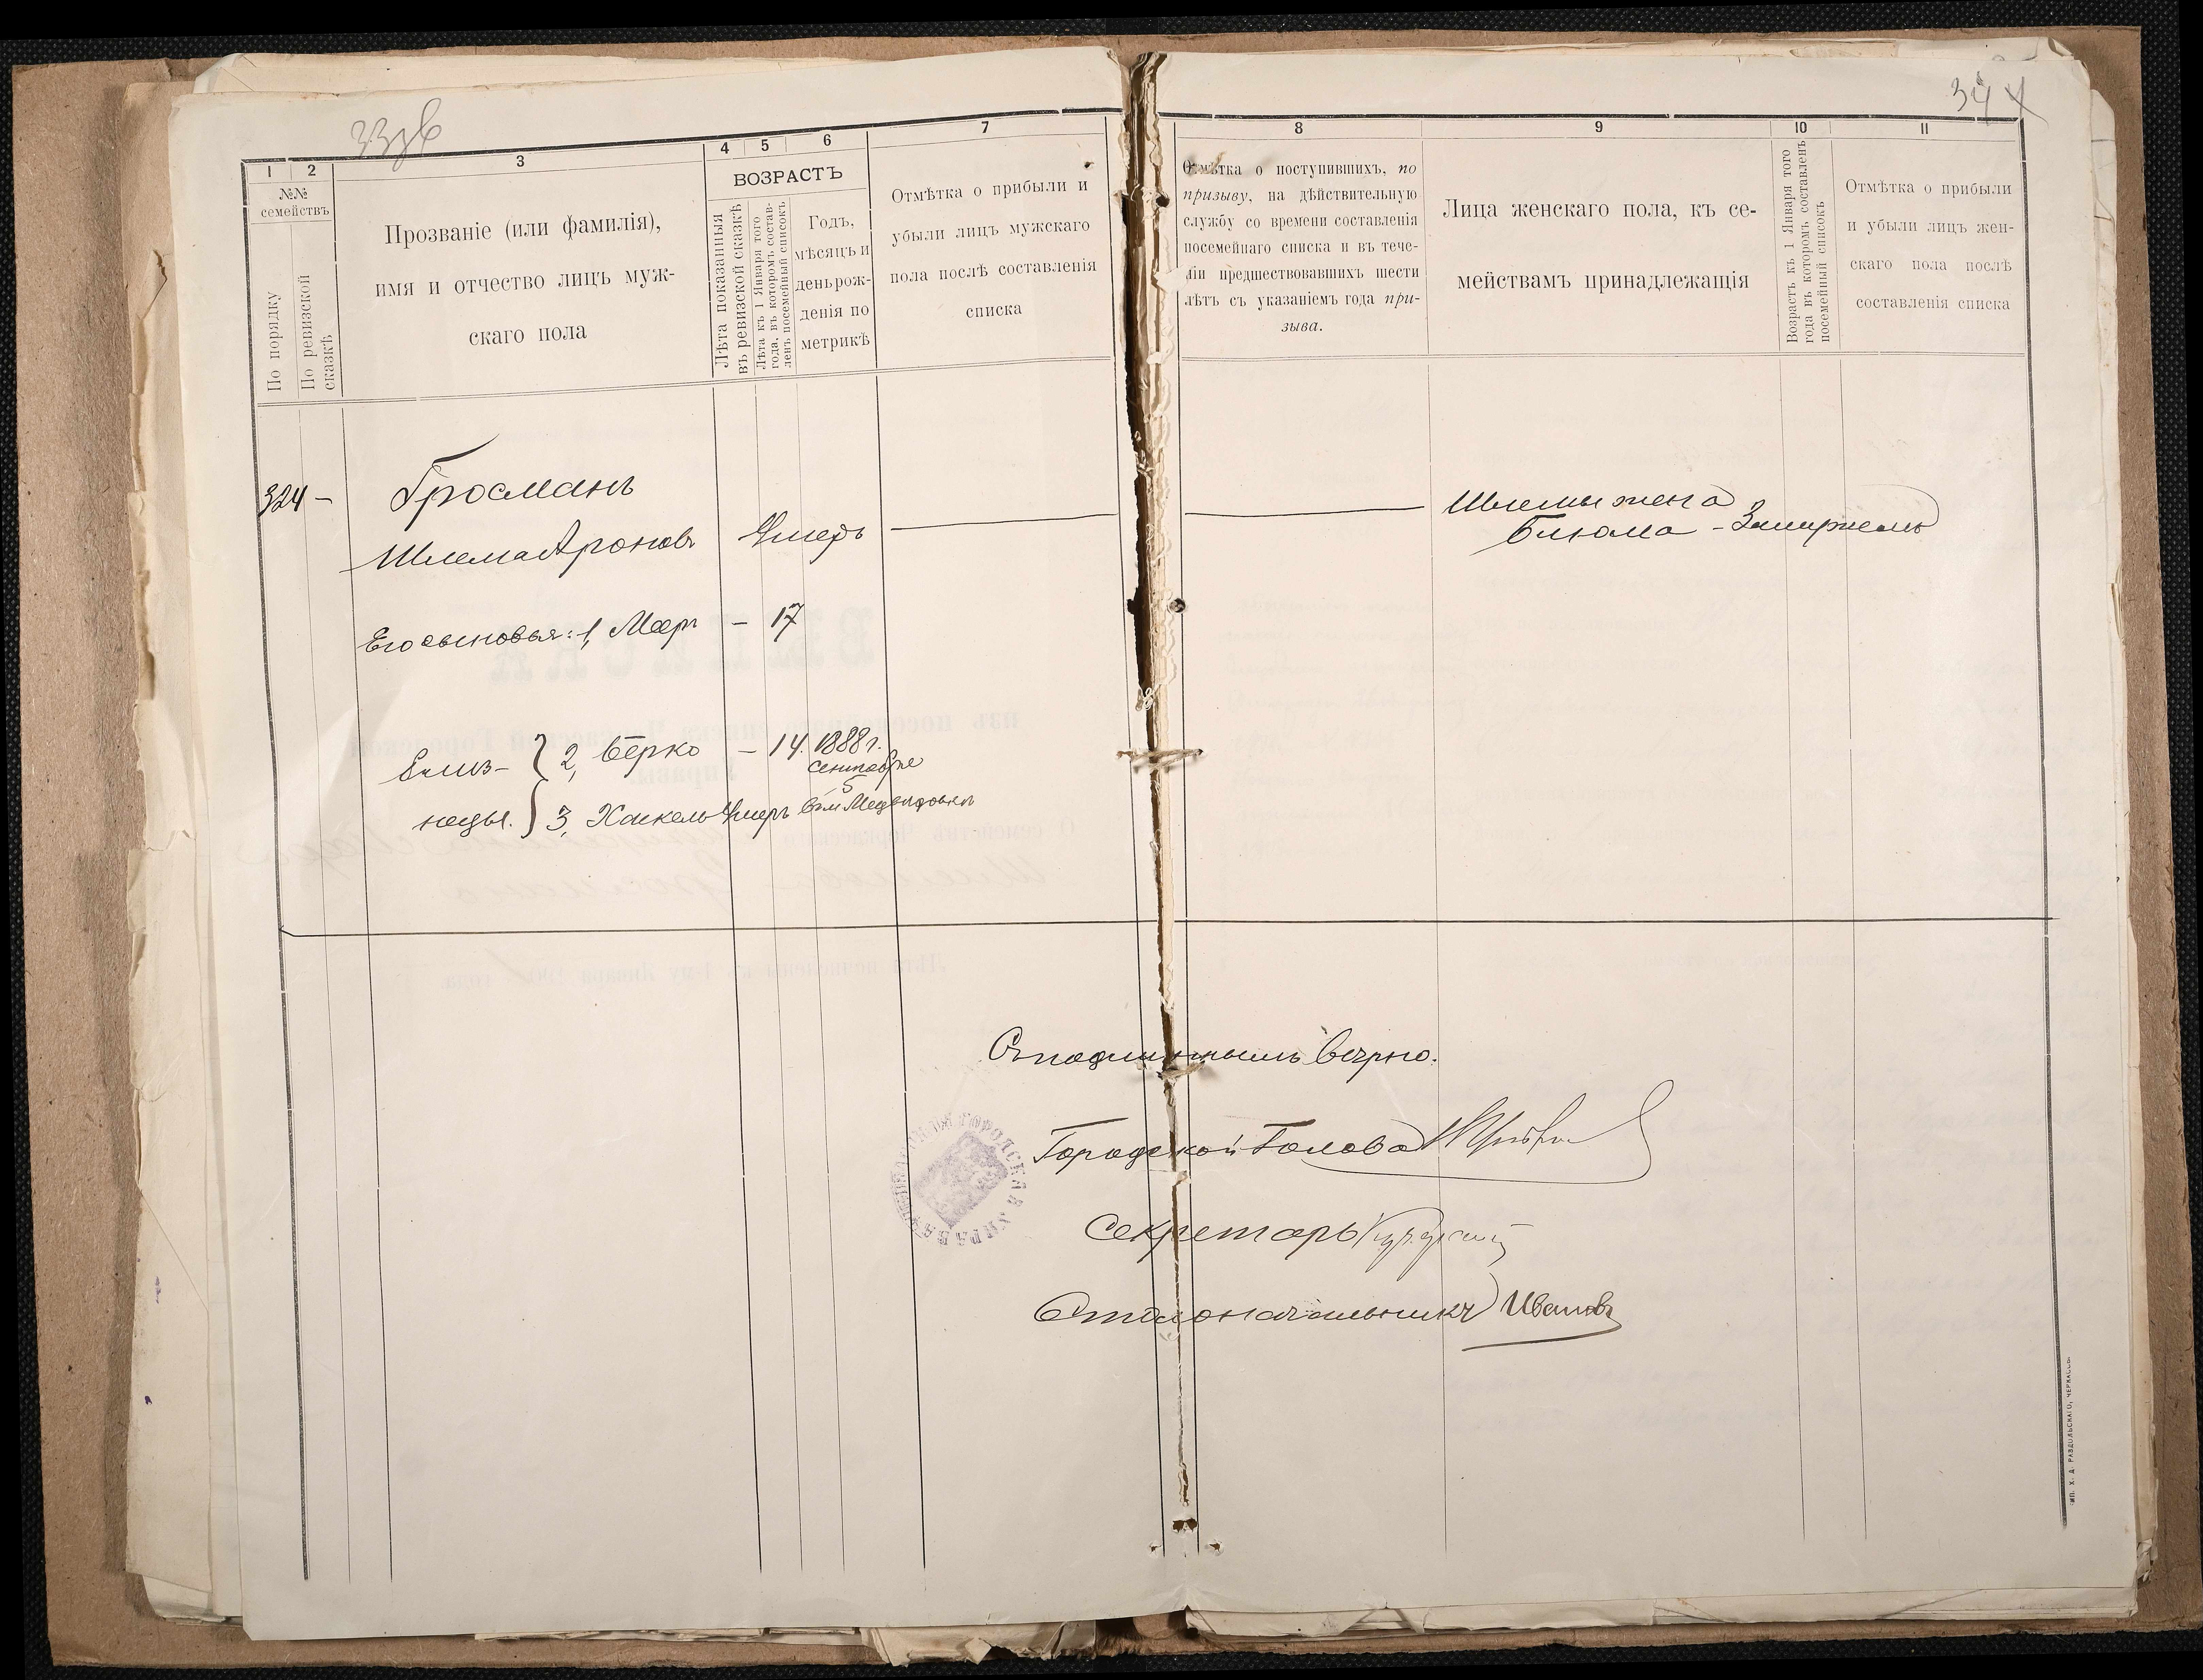 34
1
2
3
4
5
6
7
№№
семействъ
По порядку
По ревизской
сказкѣ
Прозваніе (или фамилія),
имя и отчество лицъ муж-
скаго пола
ВОЗРАСТЪ
Лѣта показанныя
въ ревизской сказкѣ
Лѣта къ 1 Января того
года, въ которомъ состав-
ленъ посемейный списокъ
Годъ,
мѣсяцъ и
день рож-
денія по
метрикѣ
Отмѣтка о прибыли и
убыли лицъ мужскаго
пола послѣ составленія
списка
8
9
10
11
Отмѣтка о поступившихъ, по
призыву, на дѣйствительную
службу со времени составленія
посемейнаго списка и въ тече-
ніи предшествовавшихъ шести
лѣтъ съ указаніемъ года при-
зыва.
Лица женскаго пола, къ се-
мействамъ принадлежащія
Возрастъ къ 1 Января того
года въ которомъ составленъ
посемейный списокъ
Отмѣтка о прибыли
и убыли лицъ жен-
скаго пола послѣ
составленія списка
324 –
Гросманъ
Шлема Ароновъ Умеръ
Шлемы жена
Блюма –
Его сыновья: 1, Меер – 17
Близ-
нецы. }
2, Берко – 14. 1888 г.
Сентября
5
3, Хаскель Умеръ
Съ подлиннымъ вѣрно:
Городской Голова
Секретарь
Столоначальникъ Иванов
ГОРОДСКАЯ УПРАВА
ТИП. Х. Д. РАЗДОЛЬСКАГО, ЧЕРКАССЫ